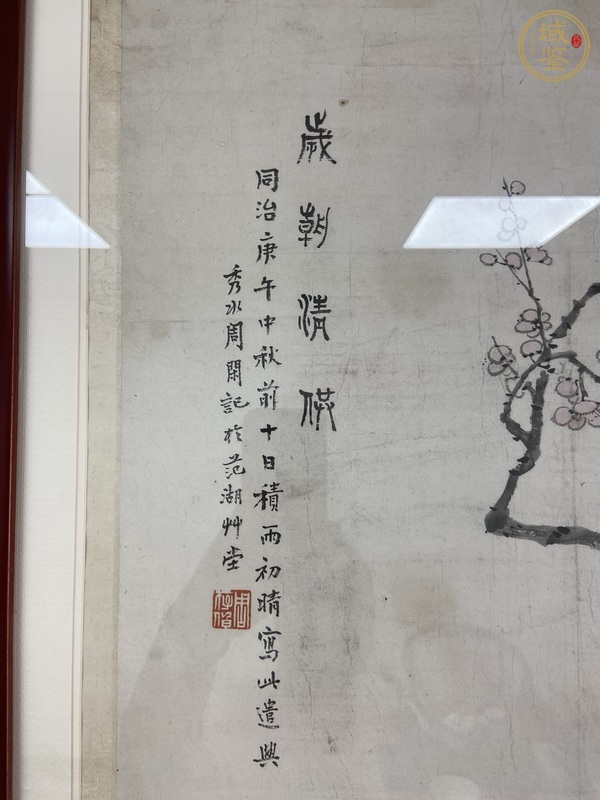 歲朝清供
同治庚午中秋前十日積雨初晴寫此遣興
秀水周閑記於范湖艸堂
域鉴